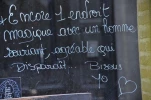 *Encore 1 endroit
magique avec un homme
souriant, agréable qui
Disparaît... Bisous
yo